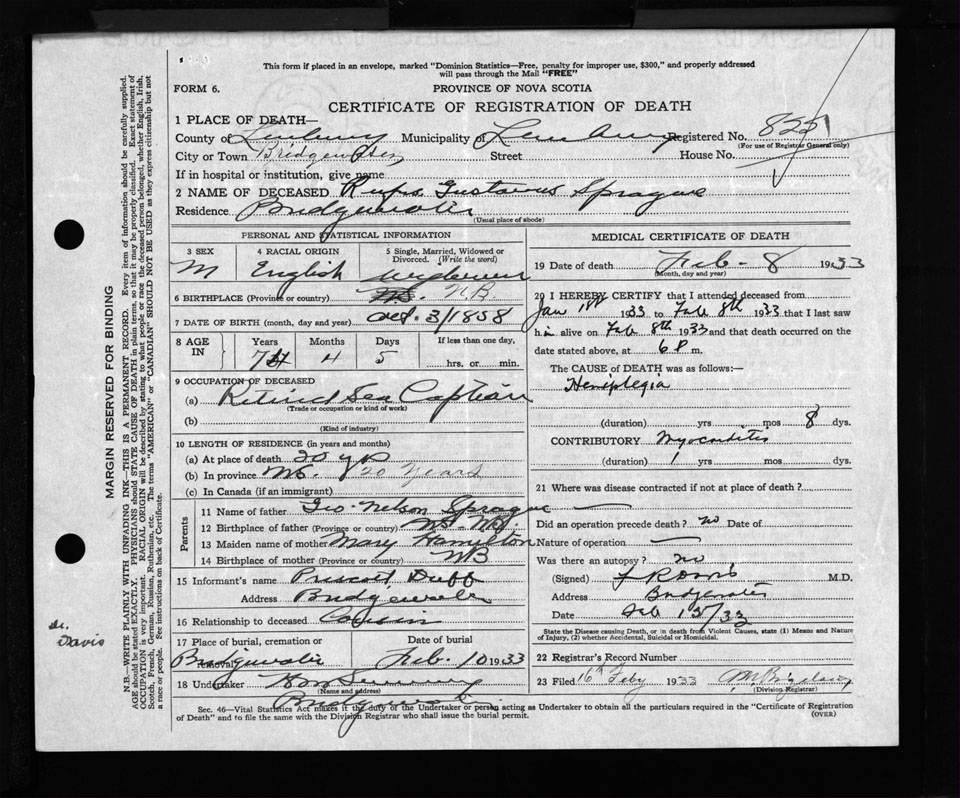 This form if placed in an envelope, marked "Dominion Statistics—Free, penalty for improper use, $300," and properly addressed
will pass through the Mail "FREE"
FORM 6.
PROVINCE OF NOVA SCOTIA
CERTIFICATE OF REGISTRATION OF DEATH
1 PLACE OF DEATH—
County of Lunenburg Municipality of Registered No. 825
(For use of Registrar General only)
City or Town Bridgewater Street House No.
If in hospital or institution, give name
2 NAME OF DECEASED Rufus Gustavus Sprague
Residence Bridgewater
(Usual place of abode)
PERSONAL AND STATISTICAL INFORMATION
3 SEX 4 RACIAL ORIGIN 5 Single, Married, Widowed or
Divorced. (Write the word)
M English Widower
6 BIRTHPLACE (Province or country) N.S. N.B.
7 DATE OF BIRTH (month, day and year) Oct. 3/1858
8 AGE IN Years Months Days If less than one day,
74 4 5 hrs. or min.
9 OCCUPATION OF DECEASED
(a) Retired Sea Captain
(Trade or occupation or kind of work)
(b)
(Kind of industry)
10 LENGTH OF RESIDENCE (in years and months)
(a) At place of death 20 yrs
(b) In province N.S. 20 Years
(c) In Canada (if an immigrant)
Parents
11 Name of father Geo. Nelson Sprague
12 Birthplace of father (Province or country) N.S. N.B.
13 Maiden name of mother Mary Hamilton
14 Birthplace of mother (Province or country) NB
15 Informant's name Duff
Address Bridgewater
16 Relationship to deceased Cousin
17 Place of burial, cremation or Date of burial
Bridgewater Feb. 10 1933
18 Undertaker
(Name and address)
Bridgewater
MEDICAL CERTIFICATE OF DEATH
19 Date of death Feb - 8 1933
(Month, day and year)
20 I HEREBY CERTIFY that I attended deceased from
Jan 1933 to Feb 8th 1933 that I last saw
him alive on Feb 8th 1933 and that death occurred on
date stated above, at 6 P m.
The CAUSE of DEATH was as follows:—
Hemiplegia
(duration) yrs mos 8 dys.
CONTRIBUTORY Myocarditis
(duration) 1 yrs mos dys.
21 Where was disease contracted if not at place of death?
Did an operation precede death? no Date of
Nature of operation
Was there an autopsy? no
(Signed) M.D.
Address Bridgewater
Date Feb 15/33
State the Disease causing Death, or in death from Violent Causes, state (1) Means and Nature
of Injury, (2) whether Accidental, Suicidal or Homicidal.
22 Registrar's Record Number
23 Filed 16th Feby 1933
(Division Registrar)
Sec. 46—Vital Statistics Act makes it the duty of the Undertaker or person acting as Undertaker to obtain all the particulars required in the "Certificate of Registration
of Death" and to file the same with the Division Registrar who shall issue the burial permit.
(OVER)
MARGIN RESERVED FOR BINDING
N.B.—WRITE PLAINLY WITH UNFADING INK—THIS IS A PERMANENT RECORD. Every item of information should be carefully supplied.
AGE should be stated EXACTLY. PHYSICIANS should STATE CAUSE OF DEATH in plain terms, so that it may be properly classified. Exact statement of
OCCUPATION is very important. RACIAL ORIGIN will be described by stating to what people or race the deceased person belonged, whether English, Irish,
Scotch, French, German, Russian, Ruthenian, etc. The terms "AMERICAN" or "CANADIAN" SHOULD NOT BE USED as they express citizenship but not
a race or people. See instructions on back of Certificate.
Dr.
Davis